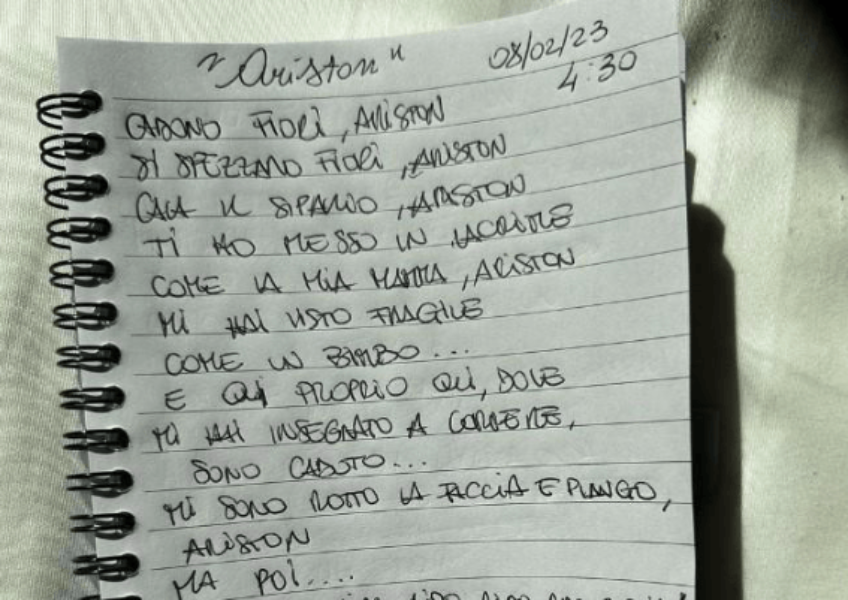 "Ariston" 08/02/23
4:30
CADONO FIORI, ARISTON
SI SPEZZANO FIORI, ARISTON
CALA IL SIPARIO, ARISTON
TI HO MESSO IN LACRIME
COME LA MIA MAMMA, ARISTON
MI HAI VISTO FRAGILE
COME UN BIMBO...
E QUI PROPRIO QUI, DOVE
MI HAI INSEGNATO A CORRERE,
SONO CADUTO...
MI SONO ROTTO LA FACCIA E PIANGO,
ARISTON
MA POI....